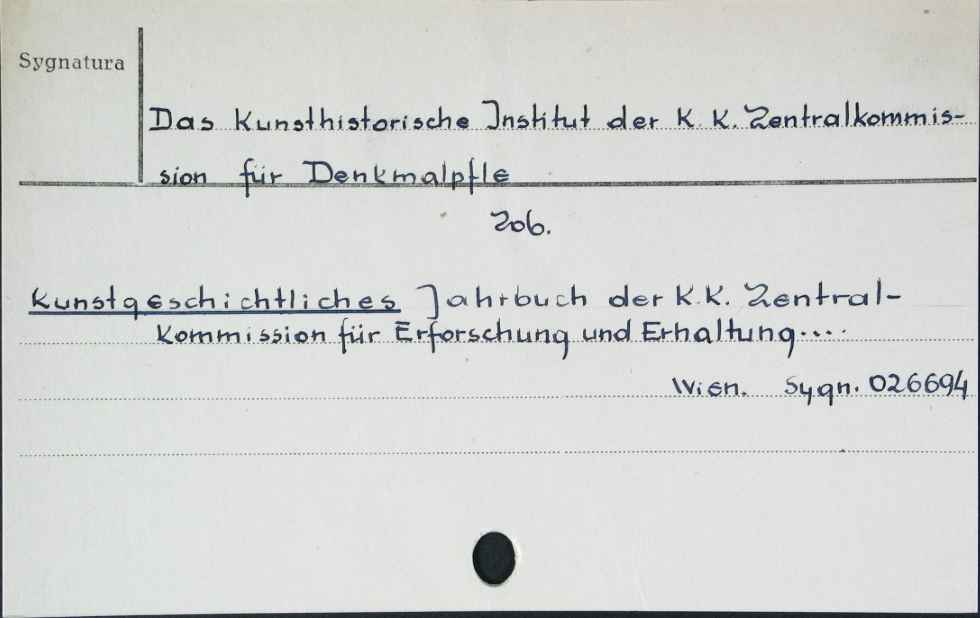 Sygnatura
Das Kunsthistorische Institut der K. K. Zentralkommis-
sion für Denkmalpfle
Zob.
Kunstgeschichtliches Jahrbuch der K.K. Zentral-
Kommission für Erforschung und Erhaltung....
Wien. Sygn. 026694